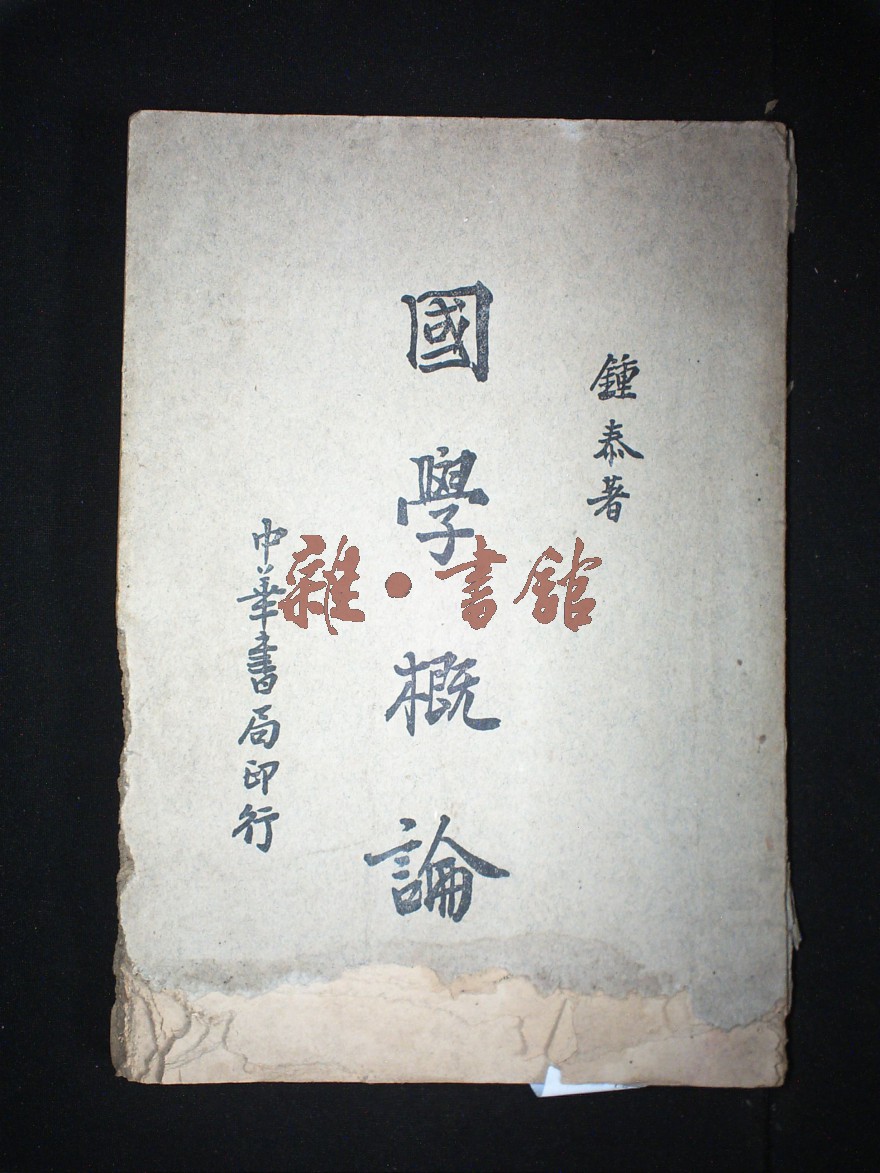 鍾泰著
國學概論
中華書局印行
雜·書館